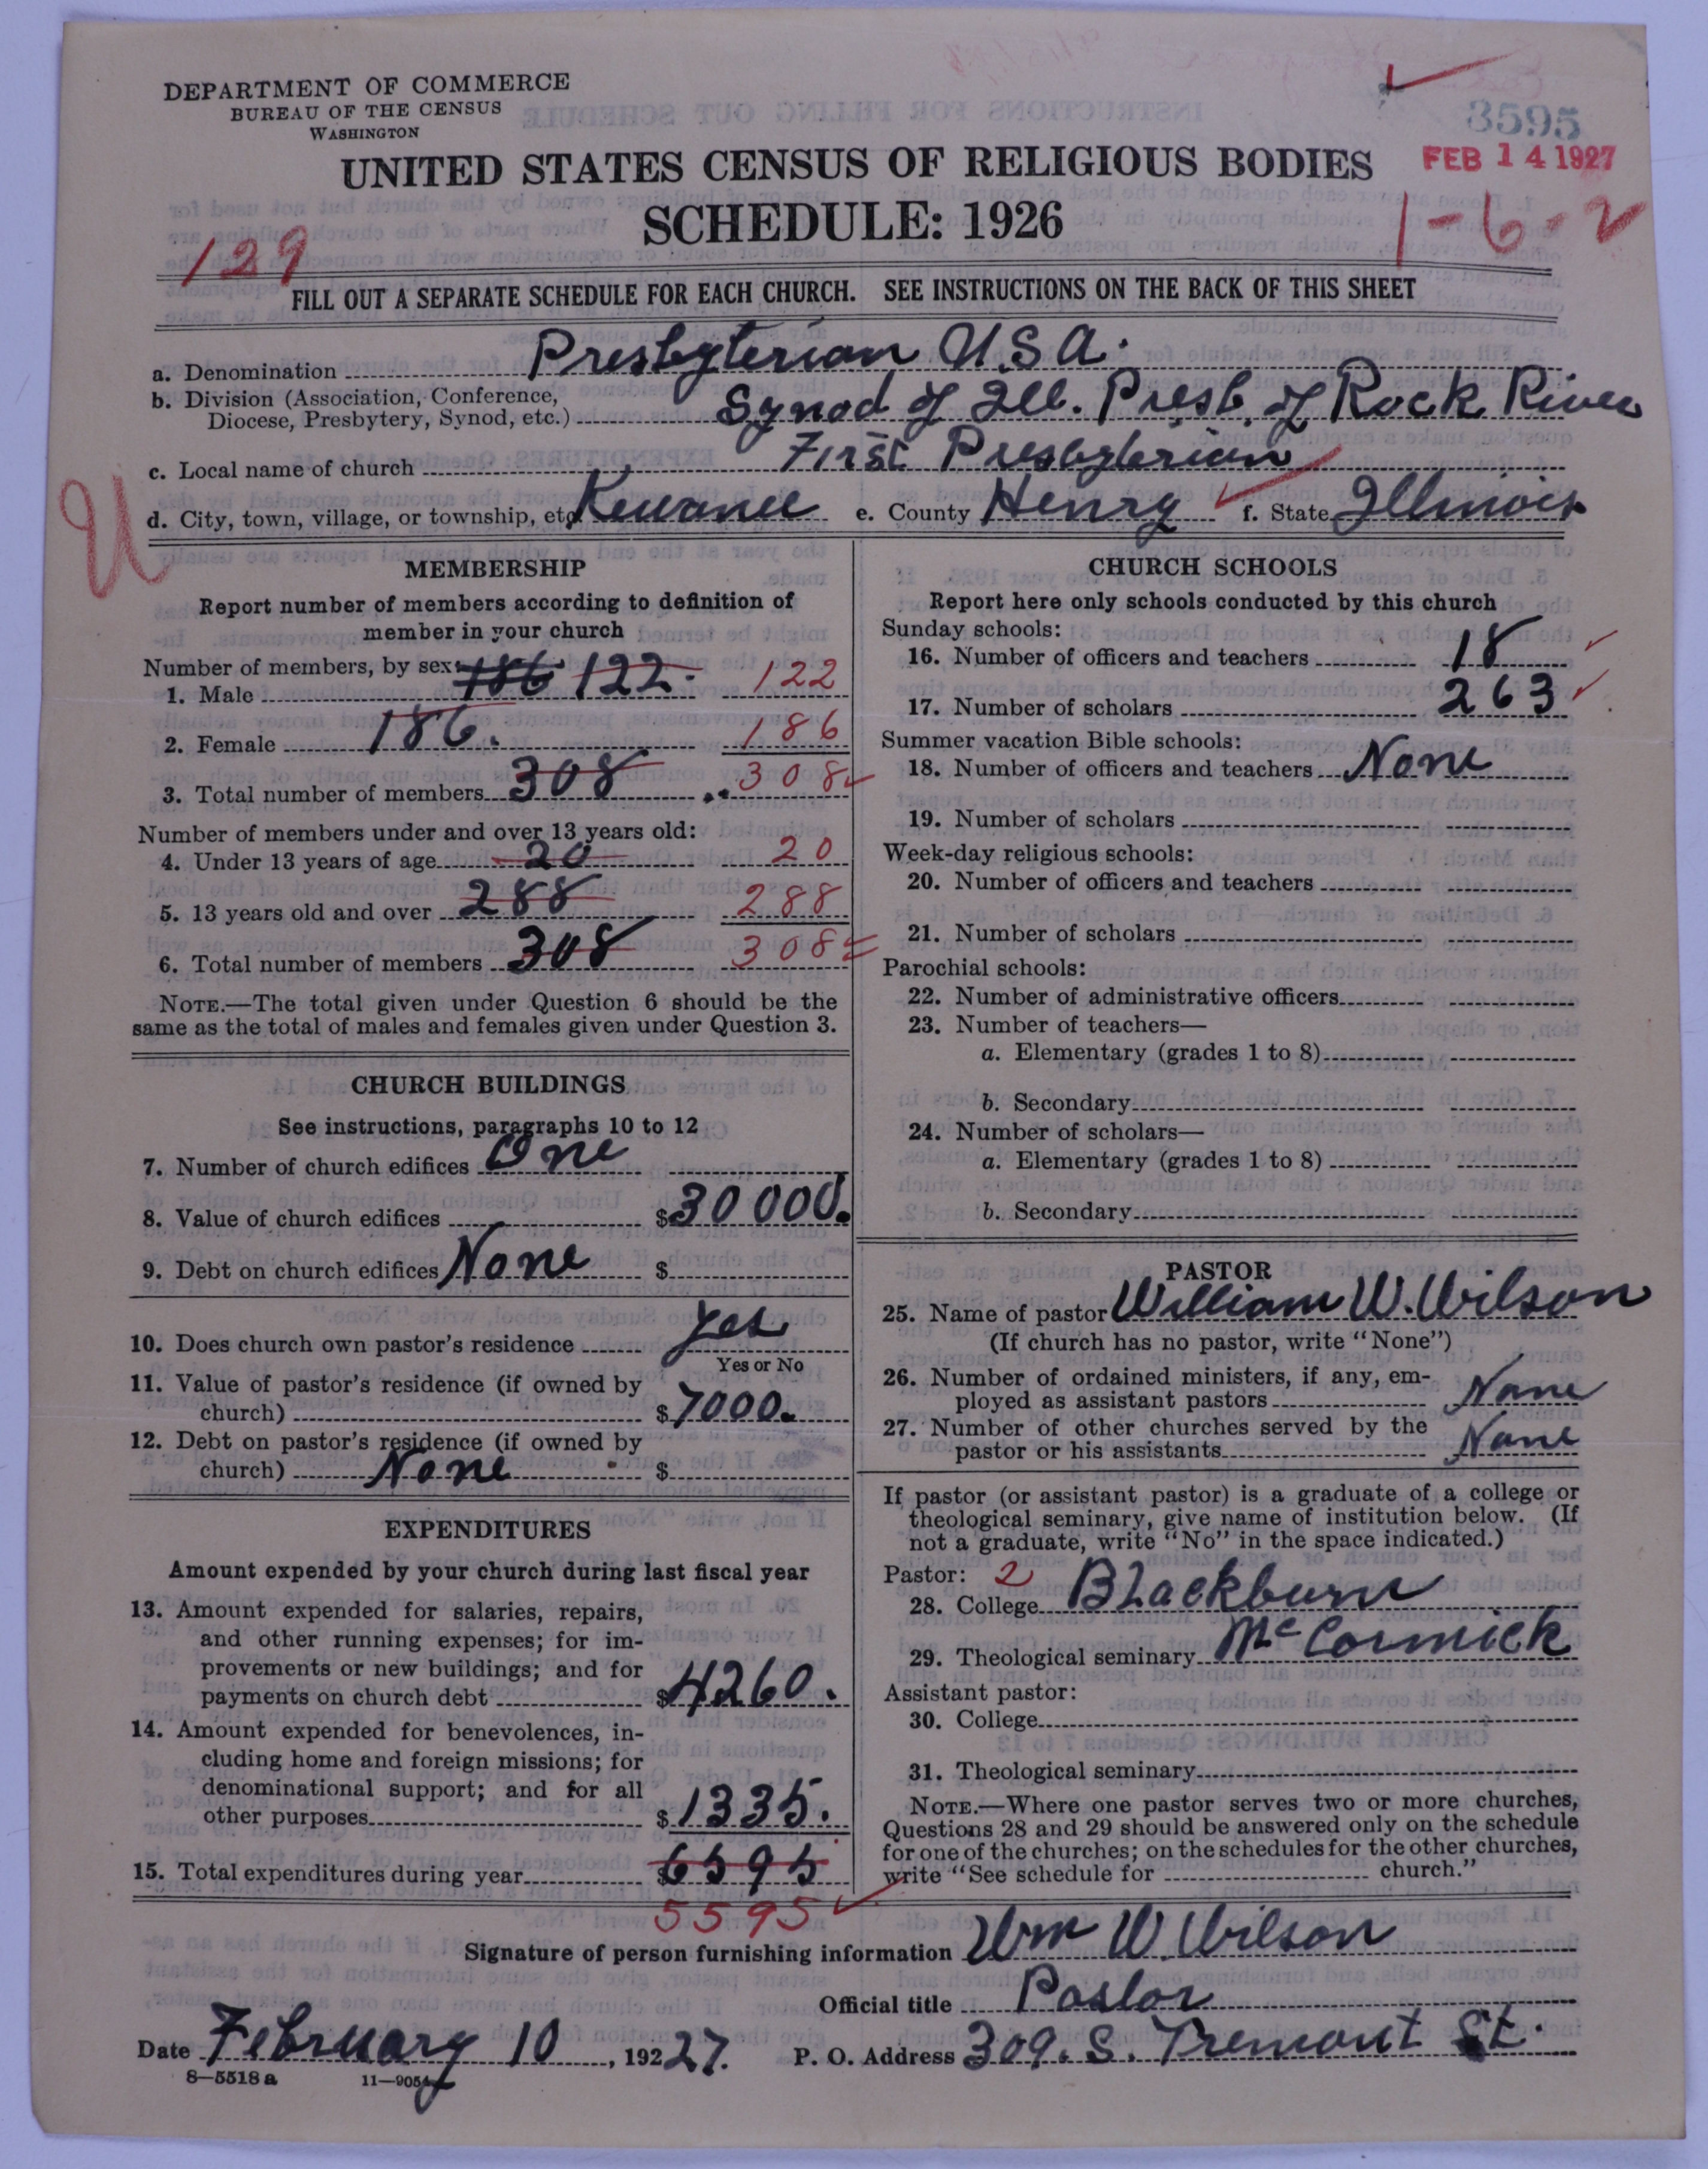 DEPARTMENT OF COMMERCE
BUREAU OF THE CENSUS
WASHINGTON
3595
FEB 14 1927
UNITED STATES CENSUS OF RELIGIOUS BODIES
SCHEDULE: 1926
1-6-2
129
FILL OUT A SEPARATE SCHEDULE FOR EACH CHURCH. SEE INSTRUCTIONS ON THE BACK OF THIS SHEET
a. Denomination Presbyterian U.S.A.
b. Division (Association, Conference,
Diocese, Presbytery, Synod, etc.) Synod of Ill. Presb. of Rock River
c. Local name of church First Presbyterian
d. City, town, village, or township, etc. Kewanee e. County Henry f. State Illinois
U
MEMBERSHIP
Report number of members according to definition of
member in your church
Number of members, by sex:
1. Male 186 122. 122
2. Female 186. 186
3. Total number of members 308 308
Number of members under and over 13 years old:
4. Under 13 years of age 20 20
5. 13 years old and over 288 288
6. Total number of members 308 308
NOTE.—The total given under Question 6 should be the
same as the total of males and females given under Question 3.
CHURCH BUILDINGS
See instructions, paragraphs 10 to 12
7. Number of church edifices One
8. Value of church edifices $30000.
9. Debt on church edifices None $
10. Does church own pastor's residence Yes
Yes or No
11. Value of pastor's residence (if owned by
church) $7000.
12. Debt on pastor's residence (if owned by
church) None $
EXPENDITURES
Amount expended by your church during last fiscal year
13. Amount expended for salaries, repairs,
and other running expenses; for im-
provements or new buildings; and for
payments on church debt $4260.
14. Amount expended for benevolences, in-
cluding home and foreign missions; for
denominational support; and for all
other purposes $1335.
15. Total expenditures during year $6595
5595
CHURCH SCHOOLS
Report here only schools conducted by this church
Sunday schools:
16. Number of officers and teachers 18
17. Number of scholars 263
Summer vacation Bible schools:
18. Number of officers and teachers None
19. Number of scholars
Week-day religious schools:
20. Number of officers and teachers
21. Number of scholars
Parochial schools:
22. Number of administrative officers
23. Number of teachers—
a. Elementary (grades 1 to 8)
b. Secondary
24. Number of scholars—
a. Elementary (grades 1 to 8)
b. Secondary
PASTOR
25. Name of pastor William W. Wilson
(If church has no pastor, write "None")
26. Number of ordained ministers, if any, em-
ployed as assistant pastors None
27. Number of other churches served by the
pastor or his assistants None
If pastor (or assistant pastor) is a graduate of a college or
theological seminary, give name of institution below. (If
not a graduate, write "No" in the space indicated.)
Pastor: 2
28. College Blackburn
29. Theological seminary McCormick
Assistant pastor:
30. College
31. Theological seminary
NOTE.—Where one pastor serves two or more churches,
Questions 28 and 29 should be answered only on the schedule
for one of the churches; on the schedules for the other churches,
write "See schedule for church."
Signature of person furnishing information Wm W. Wilson
Official title Pastor
Date February 10, 19227. P. O. Address 309. S. Tremont St.
8—5518 a 11—9054